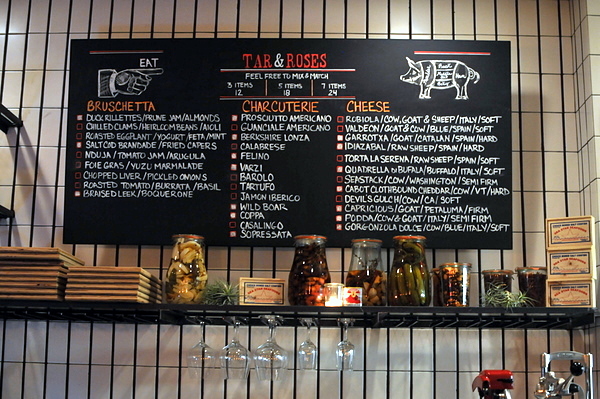 EAT
TAR & ROSES
FEEL FREE TO MIX & MATCH
3 ITEMS 5 ITEMS 7 ITEMS
12 18 24
BRUSCHETTA
DUCK RILLETTES/PRUNE JAM/ALMONDS
CHILLED CLAMS/HEIRLOOM BEANS/AIOLI
ROASTED EGGPLANT/YOGURT FETA MINT
SALT COD BRANDADE/FRIED CAPERS
NDUJA/TOMATO JAM/ARUGULA
FOIE GRAS/YUZU MARMALADE
CHOPPED LIVER/PICKLED ONIONS
ROASTED TOMATO/BURRATA/BASIL
BRAISED LEEK/BOQUERONE
CHARCUTERIE
PROSCIUTTO AMERICANO
GUANCIALE AMERICANO
BERKSHIRE LONZA
CALABRESE
FELINO
VARZI
BAROLO
TARTUFO
JAMON IBERICO
WILD BOAR
COPPA
CASALINGO
SOPRESSATA
CHEESE
ROBIOLA/COW, GOAT & SHEEP/ITALY/SOFT
VALDEON/GOAT & COW/BLUE/SPAIN/SOFT
GARROTXA/GOAT/CATALAN/SPAIN/HARD
IDIAZABAL/RAW SHEEP/SPAIN/HARD
TORTA LA SERENA/RAW SHEEP/SPAIN/SOFT
QUADRELLA DI BUFALA/BUFFALO/ITALY/SOFT
SEASTACK/COW/WASHINGTON/SEMI FIRM
CABOT CLOTHBOUND CHEDDAR/COW/VT/HARD
DEVIL'S GULCH/COW/CA/SOFT
CAPRICIOUS/GOAT/PETALUMA/FIRM
PODDA/COW & GOAT/ITALY/SEMI FIRM
GORGONZOLA DOLCE/COW/BLUE/ITALY/SOFT